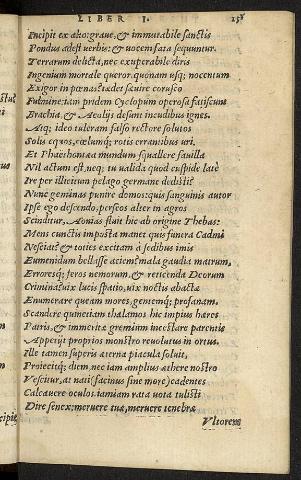 LIBER I. 15
Incipit ex alto: graue, & immutabile sanctis
Pondus adest uerbis: & uocem fata sequuntur.
Terrarum delicta, nec exuperabile diris
Ingenium mortale queror. quonam usq; nocentum
Exigar in pœnas? tædet sæuire corusco
Fulmine: iam pridem Cyclopum operosa fatiscunt
Brachia, & Aeolijs desunt incudibus ignes.
Atq; ideo tuleram falso rectore solutos
Solis eqωos, cœlumq; rotis errantibus uri,
Et Phaethontæa mundum squallere fauilla
Nil actum est, neq; tu ualida quod cuspide late
Ire per illicitum pelago germane dedisti?
Nunc geminas punire domos: quis sanguinis autor
Ipse ego descendo. perseos alter in agros
Scinditur, Aonias fluit hic ab origine Thebas:
Mens cunctis imposta manet quis funera Cadmi
Nesciat? & toties excitam à sedibus imis
Eumenidum bellasse aciem? mala gaudia matrum,
Erroresq; feros nemorum, & reticenda Deorum
Crimina? uix lucis spatio, uix noctis abactæ
Enumerare queam mores, gentemq; profanam.
Scandere quinetiam thalamos hic impius hæres
Patris, & immeritæ gremium incestare parentis
Appetijt proprios monstro reuolutus in ortus.
Ille tamen superis æterna piacula soluit,
Proiecitq; diem nec iam amplius æthere nostro
Vescitur, at nati (facinus sine more) cadentes
Calcauere oculos. iamiam rata uota tulisti
Dire senex: meruere tuæ, meruere tenebræ
Vltorem